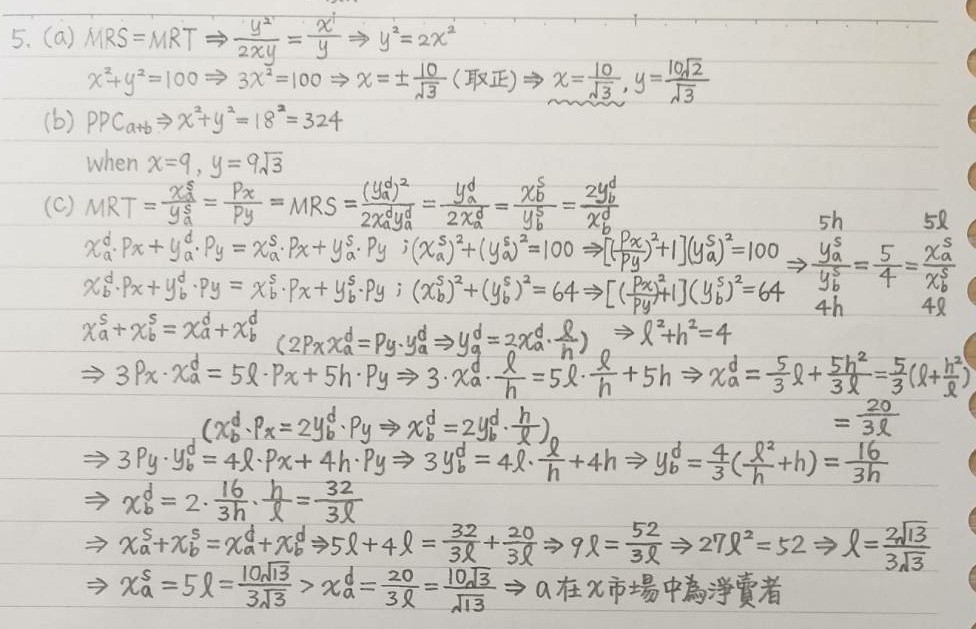 5. (a) MRS = MRT ⇒ y²/2xy = x/y ⇒ y² = 2x²
x²+y²=100 ⇒ 3x²=100 ⇒ x=±10/√3 (取正) ⇒ x=10/√3, y=10√2/√3
(b) PPCa+b ⇒ x²+y²=18²=324
when x=9, y=9√3
(c) MRT = xₐˢ/yₐˢ = Px/Py = MRS = (yₐᵈ)²/2xₐᵈyₐᵈ = yₐᵈ/2xₐᵈ = x_bˢ/y_bˢ = 2y_bᵈ/x_bᵈ
xₐᵈ·Px + yₐᵈ·Py = xₐˢ·Px + yₐˢ·Py ; (xₐˢ)²+(yₐˢ)²=100 ⇒ [(Px/Py)²+1](yₐˢ)²=100
x_bᵈ·Px + y_bᵈ·Py = x_bˢ·Px + y_bˢ·Py ; (x_bˢ)²+(y_bˢ)²=64 ⇒ [(Px/Py)²+1](y_bˢ)²=64
5h 5l
⇒ yₐˢ/y_bˢ = 5/4 = xₐˢ/x_bˢ
4h 4l
xₐˢ+x_bˢ = xₐᵈ+x_bᵈ (2Px xₐᵈ = Py·yₐᵈ ⇒ yₐᵈ = 2xₐᵈ·l/h) ⇒ l²+h²=4
⇒ 3Px·xₐᵈ = 5l·Px + 5h·Py ⇒ 3·xₐᵈ·l/h = 5l·l/h + 5h ⇒ xₐᵈ = 5/3 l + 5h²/3l = 5/3(l+h²/l)
= 20/3l
(x_bᵈ·Px = 2y_bᵈ·Py ⇒ x_bᵈ = 2y_bᵈ·h/l)
⇒ 3Py·y_bᵈ = 4l·Px + 4h·Py ⇒ 3y_bᵈ = 4l·l/h + 4h ⇒ y_bᵈ = 4/3(l²/h + h) = 16/3h
⇒ x_bᵈ = 2·16/3h·h/l = 32/3l
⇒ xₐˢ+x_bˢ = xₐᵈ+x_bᵈ ⇒ 5l+4l = 32/3l + 20/3l ⇒ 9l = 52/3l ⇒ 27l² = 52 ⇒ l = 2√13/3√3
⇒ xₐˢ = 5l = 10√13/3√3 > xₐᵈ = 20/3l = 10√3/√13 ⇒ a在x市場中為淨賣者